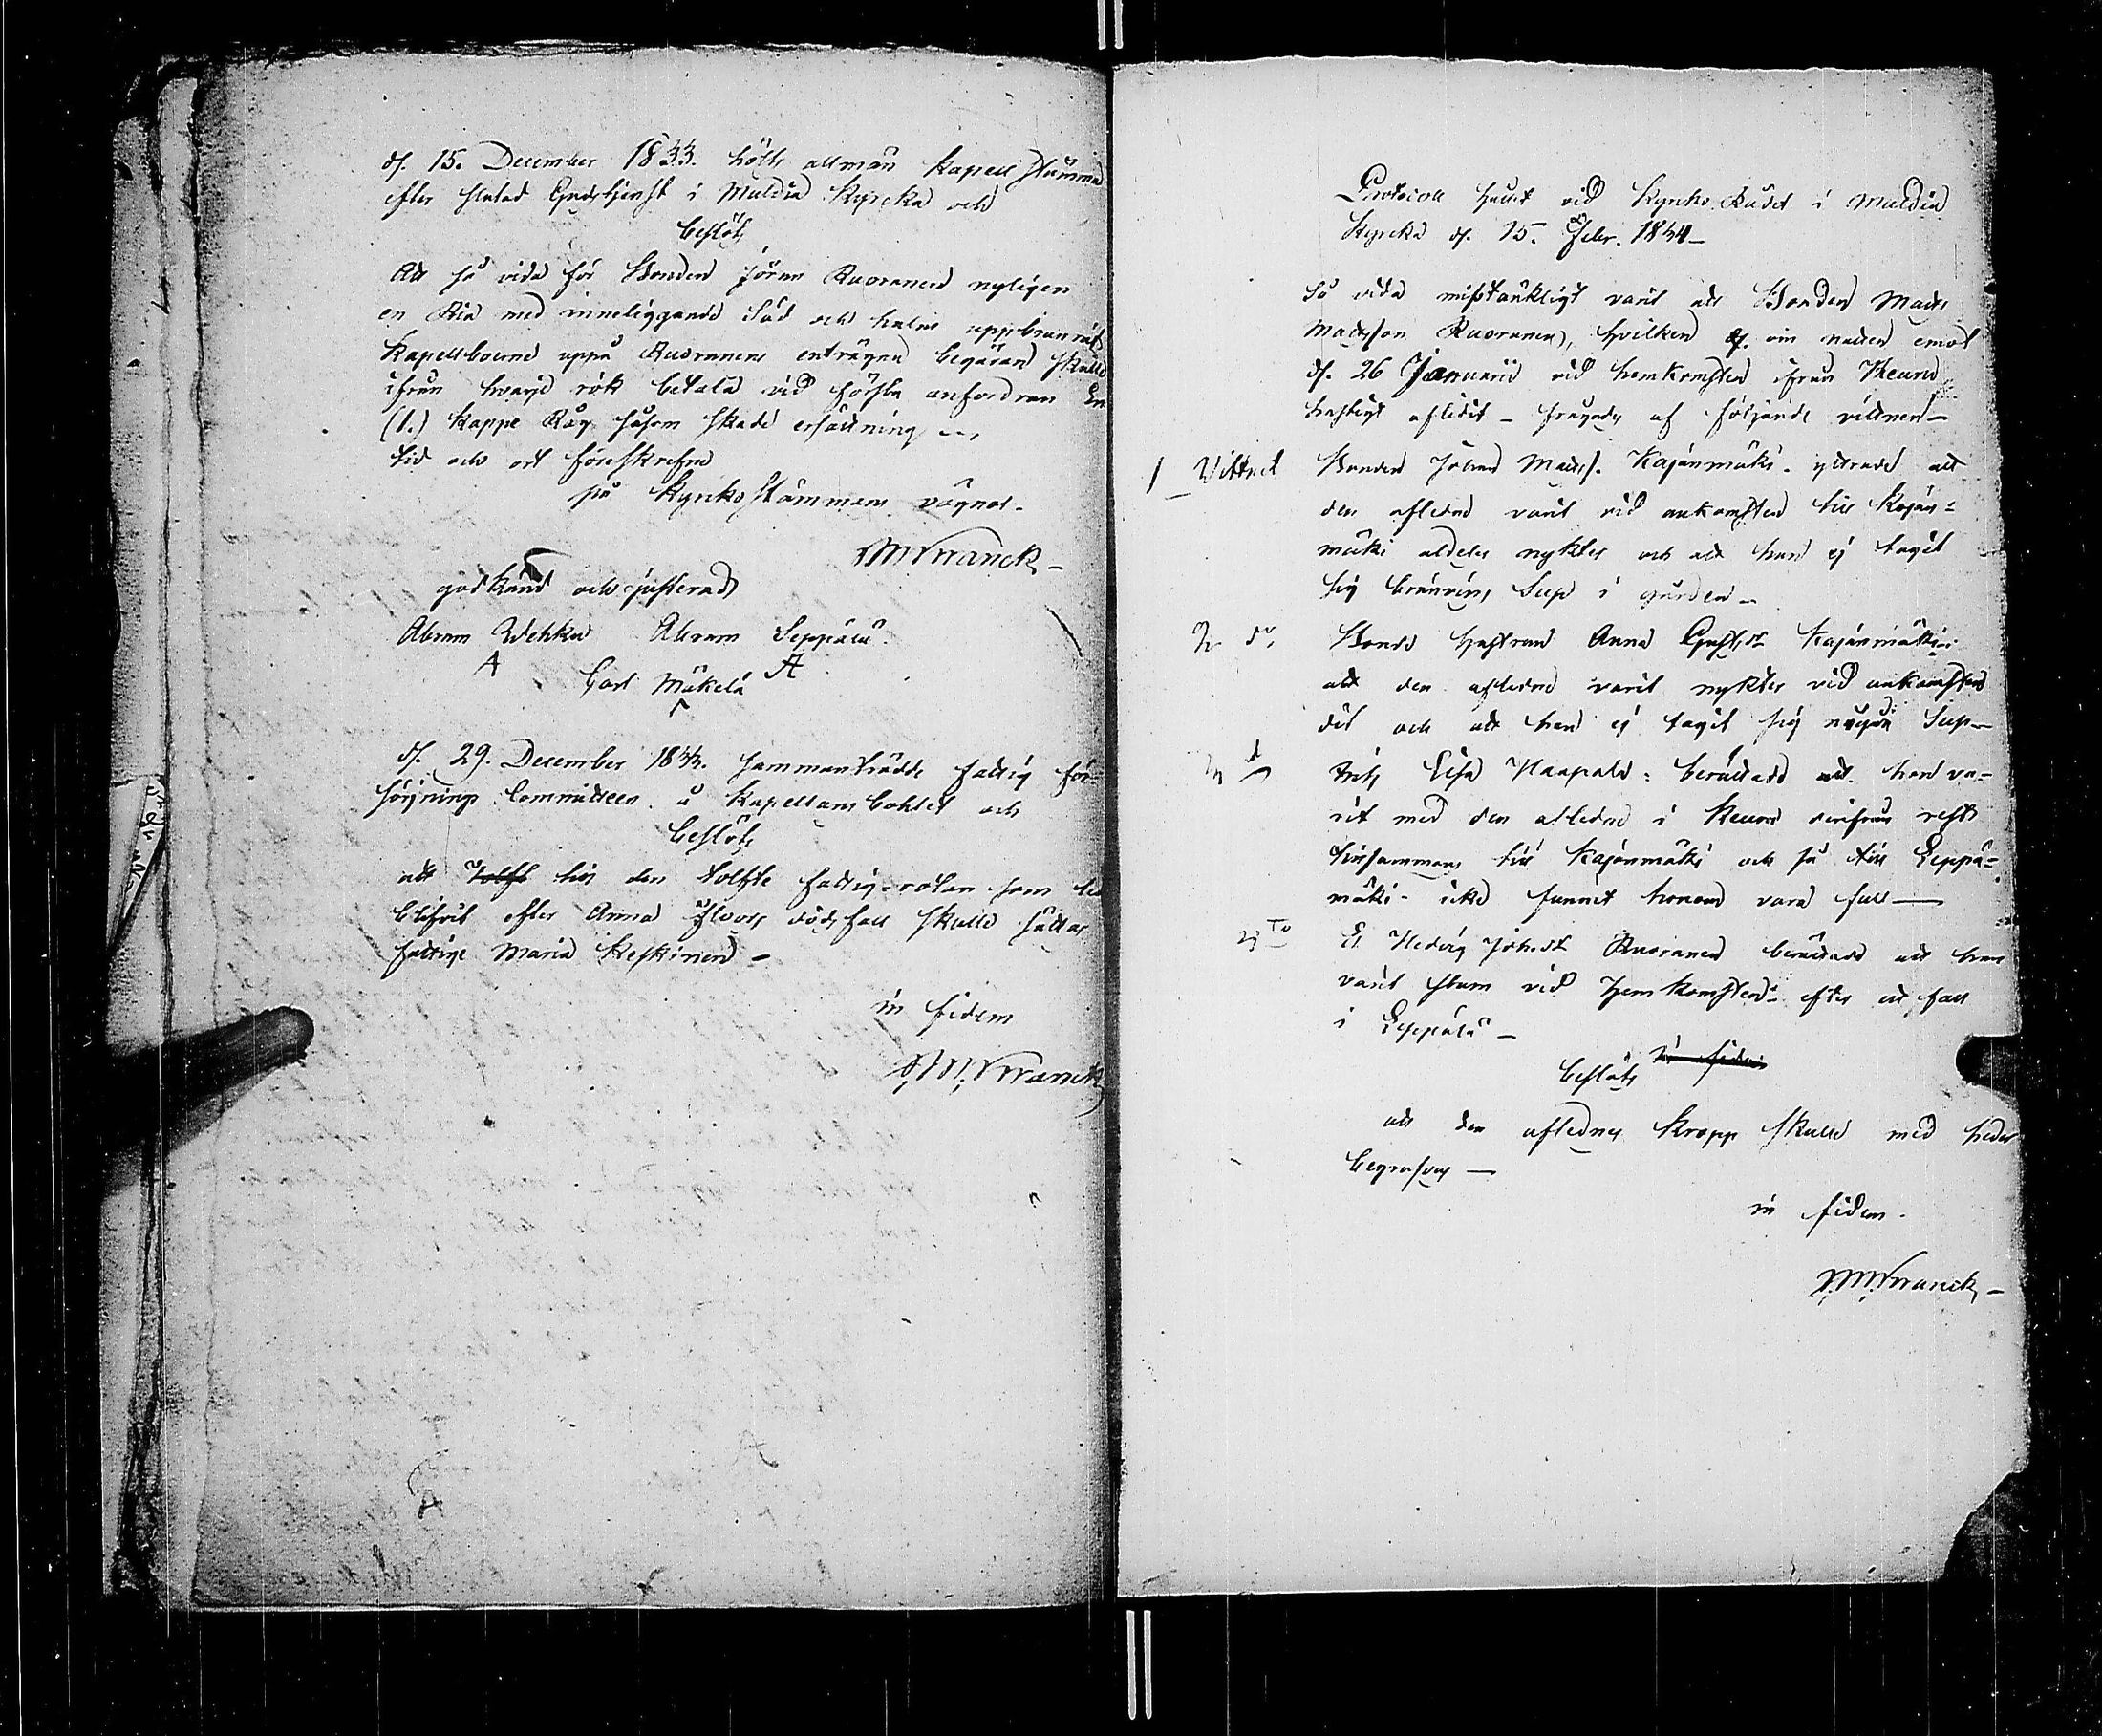 d. 15. December 1833. hölts allmän Kapell Stämma
efter slutad Gudstjenst i Muldia Kyrcka och
beslöts
Att så vida för Bonden Jöran Ruoranen nyligen
en Ria med inneliggande Säd och halm uppbrunnit
Kapellboerne uppå Ruoranens enträgna begäran skulle
ifrån hvarje rök betala vid första anfordran En
(1.) Kappe Råg såsom skade ersättning
tid och ort föreskrefne
på Kyrko Stämmans vägnar.
Wranck
godkänd och justerad
Abram Wehku Abram Seppälä
A A
Carl Mäkelä
d. 29. December 1833. sammanträdde Fattig för-
sörjnings Committeen å Kapellans bohlet och
beslöts
att Tolft till den tolfte fattig-roten som
blifvit efter Anna dödsfall skulle sättas
fattige Maria Keskinen -
in fidem
Wranck
Protocoll hållit vid Kyrko Rådet i Muldia
Kyrcka d. 15. Febr. 1834 -
Så vida misstänkligt varit att Bonden Matts
Mattsson Ruoranen, hvilken d. om natten emot
d. 26 Januarii vid hemkomsten ifrån Keuru
hastigt aflidit - frågades af följande vittnen -
1 Vittnet Bonden Johan Matts. Kajanmäki. yttrade att
den afledne varit vid ankomsten till Kajan=
mäki aldeles nykter och att han ej tagit
sig bränvins Sup i gården -
2 do Bonde hustrun Anna Gustsdr Kajanmäki:
att den aflidne varit nykter vid ankomsten
dit och att han ej tagit sig någon Sup -
3 d Elsa Haapala: berättade att hon va-
rit med den afledne i Keuru derifrån rest
tillsammans till Kajanmäki och så till Leppä=
mäki - icke funnit honom vara full —
4 To Hedvig Johsdr Ruoranen berättade att han
varit stum vid hemkomsten - efter ett fall
i Leppälä -
in fidem
beslöts
att den aflednes kropp skulle med heder
begrafvas —
in fidem.
Wranck -